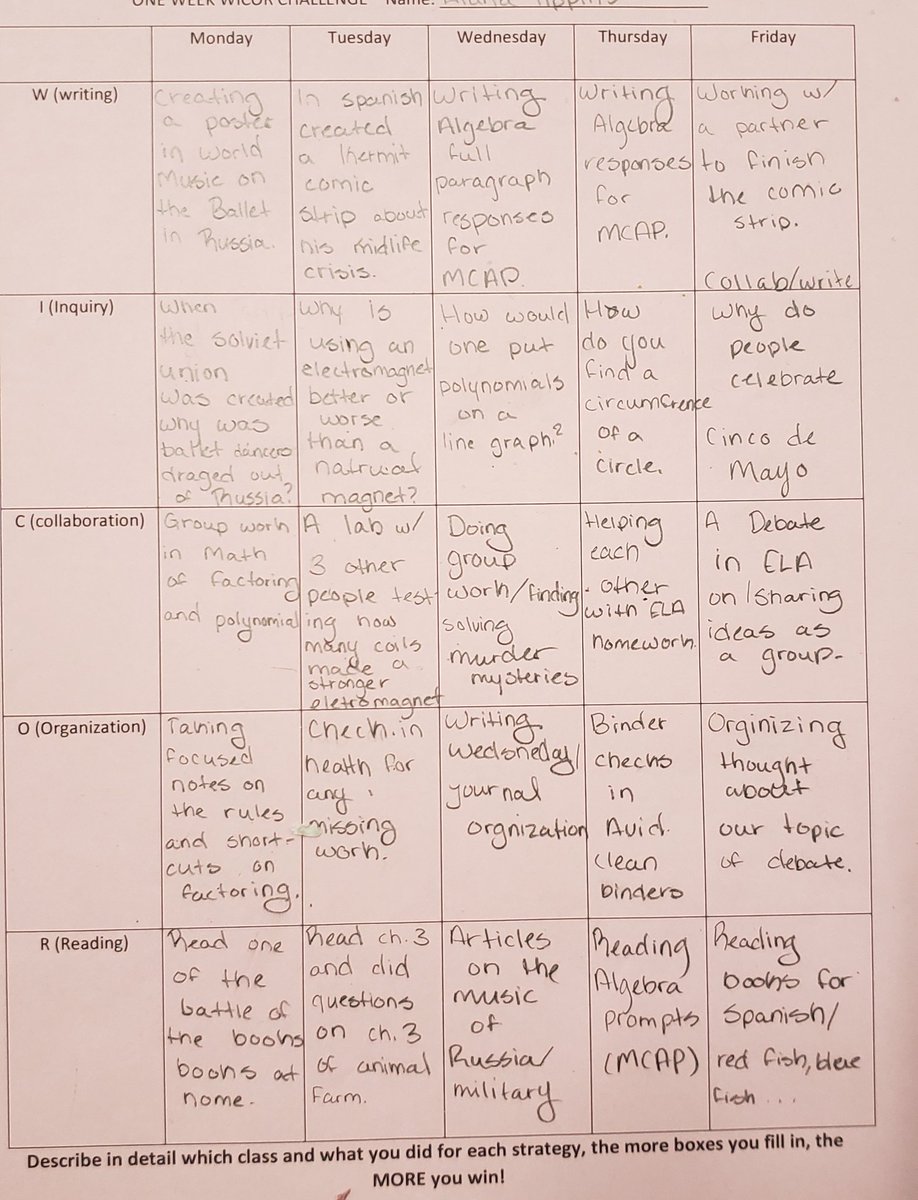 ONE WEEK WICOR CHALLENGE Name:
Monday
Tuesday
Wednesday
Thursday
Friday
W (writing)
Creating
a poster
in world
Music on
the Ballet
in Russia.
In spanish
created
a Kermit
comic
strip about
his midlife
crisis.
Writing
Algebra
full
paragraph
responses
for
MCAP.
Writing
Algebra
responses
for
MCAP.
Working w/
a partner
to finish
the comic
strip.
Collab/write
I (Inquiry)
When
the solviet
union
was created
why was
ballet dancers
draged out
of Russia?
Why is
using an
electromagnet
better or
worse
than a
natrual
magnet?
How would
one put
polynomials
on a
line graph?
How
do you
find a
circumfrence
of a
circle.
Why do
people
celebrate
Cinco de
Mayo
C (collaboration)
Group work
in Math
of factoring
and polynomial
A lab w/
3 other
people test-
ing how
many coils
made a
stronger
eletromagnet
Doing
group
work/finding
solving
murder
mysteries
Helping
each
other
with ELA
homework.
A Debate
in ELA
on/sharing
ideas as
a group-
O (Organization)
Taking
focused
notes on
the rules
and short-
cuts on
factoring.
Check.in
health for
any
missing
work.
Writing
Wedsneday/
journal
orgnization
Binder
checks
in
Avid.
clean
binders
Orginizing
thought
about
our topic
of debate.
R (Reading)
Read one
of the
battle of
the books
books at
home.
Read ch.3
and did
questions
on ch.3
of animal
Farm.
Articles
on the
music
of
Russia/
military
Reading
Algebra
prompts
(MCAP)
Reading
books for
Spanish/
red fish, blue
fish ...
Describe in detail which class and what you did for each strategy, the more boxes you fill in, the
MORE you win!